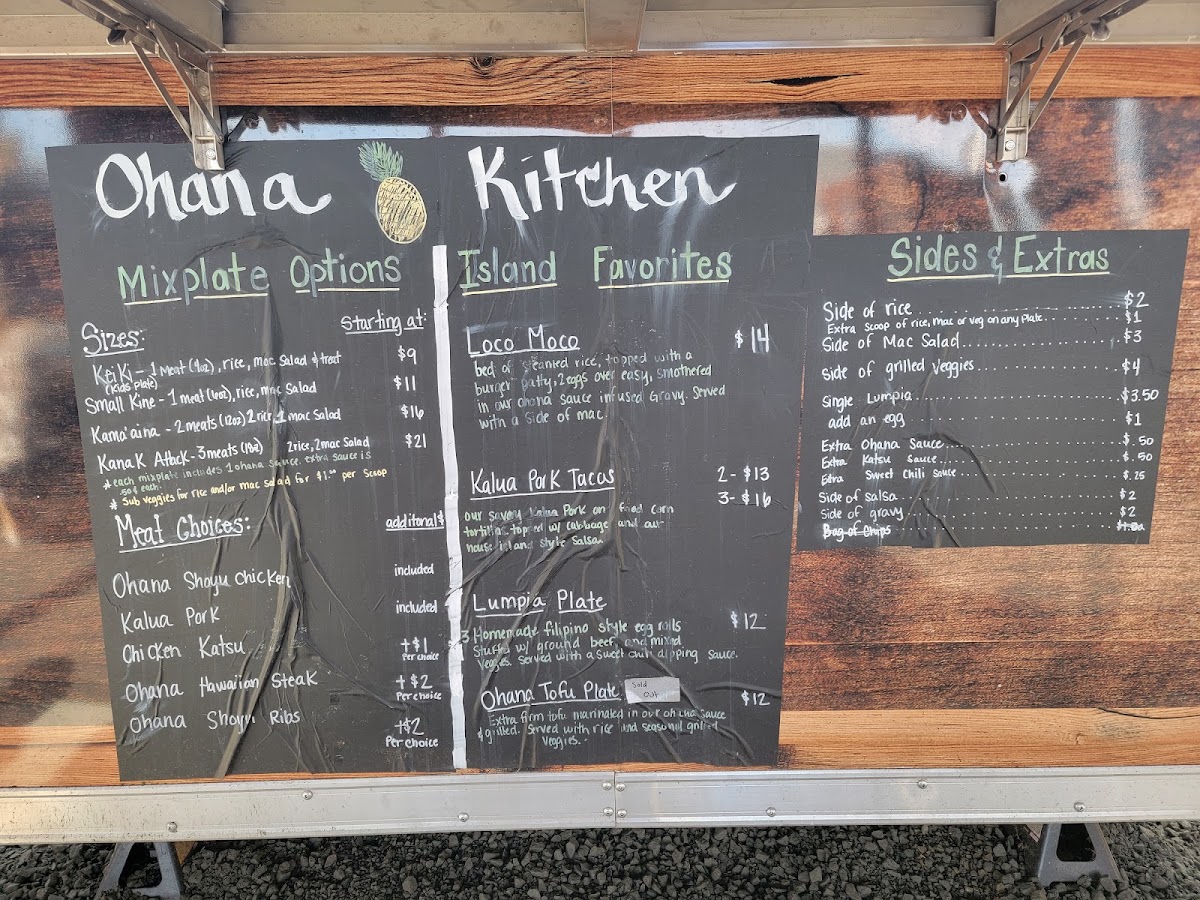 Ohana Kitchen
Mixplate Options
Sizes:
Starting at:
KeiKi - 1 Meat (4oz), rice, mac Salad & treat $9
(Kids Plate)
Small Kine - 1 meat (6oz), rice, mac Salad $11
Kama'aina - 2 meats (12oz) 2 rice, 1 mac Salad $16
KanaK Attack - 3 meats (18oz) 2 rice, 2 mac Salad $21
* each mixplate includes 1 ohana sauce. extra sauce is
.50¢ each.
* Sub veggies for rice and/or mac Salad for $1.00 per Scoop
Meat Choices:
additonal $
Ohana Shoyu Chicken included
Kalua Pork included
Chicken Katsu +$1
Per choice
Ohana Hawaiian Steak +$2
Per choice
Ohana Shoyu Ribs +$2
Per choice
Island Favorites
Loco Moco $14
bed of steamed rice, topped with a
burger patty, 2 eggs over easy, smothered
in our ohana sauce infused gravy. Served
with a side of mac.
Kalua Pork Tacos 2- $13
3- $16
our savory Kalua Pork on fried corn
tortillas topped w/ cabbage and our
house island style Salsa.
Lumpia Plate $12
3 Homemade filipino style egg rolls
Stuffed w/ ground beef, and mixed
veggies. Served with a sweet chili dipping sauce.
Ohana Tofu Plate $12
Sold
Out
Extra firm tofu marinated in our ohana sauce
& grilled. Served with rice and seasonal grilled
veggies.
Sides & Extras
Side of rice $2
Extra Scoop of rice, mac or veg on any Plate. $1
Side of Mac Salad $3
Side of grilled veggies $4
Single Lumpia $3.50
add an egg $1
Extra Ohana Sauce $.50
Extra Katsu Sauce $.50
Extra Sweet Chili Sauce $.25
Side of salsa $2
Side of gravy $2
Bag of Chips